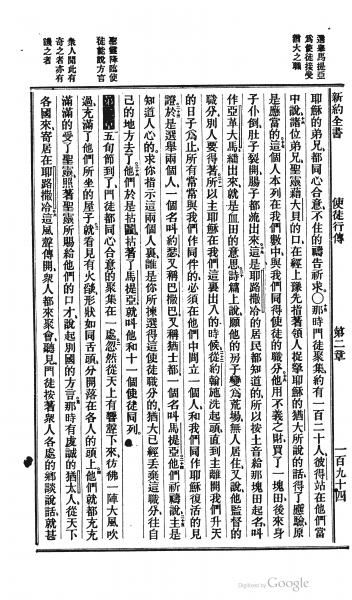 新約全書　使徒行傳　第二章　一百九十四
選舉馬提亞
為使徒接受
猶大之職
耶穌的弟兄都同心合意、不住的禱告祈求○那時門徒聚集約有一百二十人彼得站在他們當
中說、諸位弟兄、聖靈藉大衛的口、在經上豫先指著領人捉拏耶穌的猶大所說的話、得了應驗、原
是應當的這個人本列在我們數中、與我們同得使徒的職分他用不義之財買了一塊田後來身
子仆倒肚子裂開腸子都流出來、這是耶路撒冷的居民都知道的、所以按土音給那塊田起名叫
作亞革大馬繙出來就是血田的意思詩篇上說、願他的房子變為荒場、無人居住、又說他監督的
職分、別人要得著所以主耶穌在我們這裏出入的時候、從約翰施洗起頭直到主離開我們升天
的日子為止所有常常與我們作同伴的必須在他們中間立一個人和我們同作耶穌復活的見
證於是選舉兩個人、一個名叫約瑟又稱巴撒巴又稱猶士都一個名叫馬提亞他們祈禱說主是
知道人心的、求你指示這兩個人裏誰是你所揀選得這使徒職分的、猶大已經丟棄這職分往自
己的地方去了他們於是拈鬮拈著了馬提亞就叫他和十一個使徒同列
聖靈降臨使
徒能說方言
第二章 五旬節到了、門徒都同心合意的聚集在一處忽然從天上有響聲下來、彷彿一陣大風吹
過充滿了他們所坐的屋子就看見有火燄形狀如同舌頭分開落在各人的頭上他們就都充充
滿滿的受了聖靈照著聖靈所賜給他們的口才、說起別國的方言那時有虔誠的猶太人、從天下
衆人聞此有
奇之者亦有
譏之者
各國來、寄居在耶路撒冷這風聲傳開、衆人都來聚會、聽見門徒按著衆人各處的鄉談說話就甚
Digitized by Google